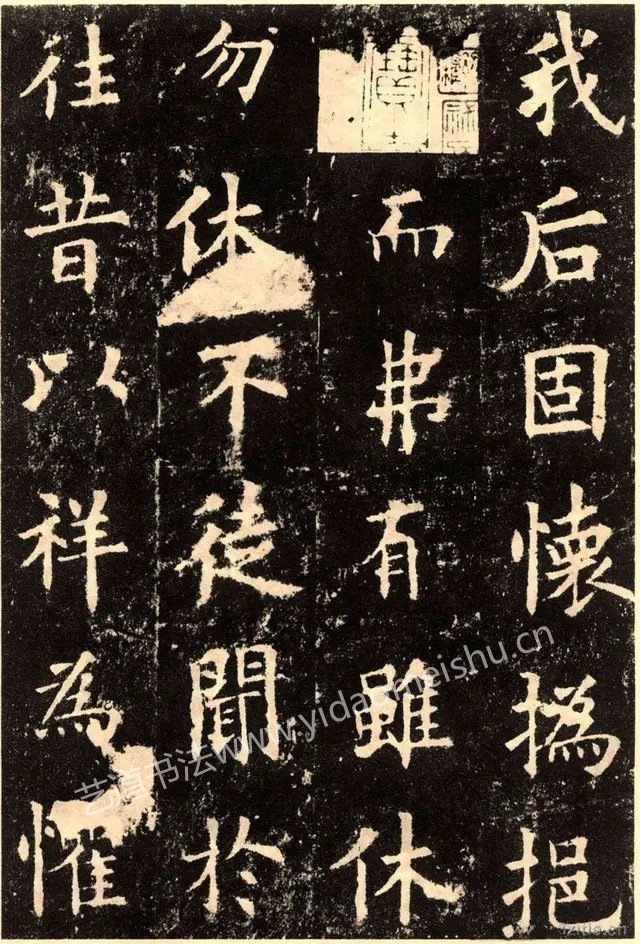 我后固懷撝挹
寶
而弗有雖休
勿休不徒聞於
徃昔以祥為懼
艺道书法www.yidaomeishu.cn